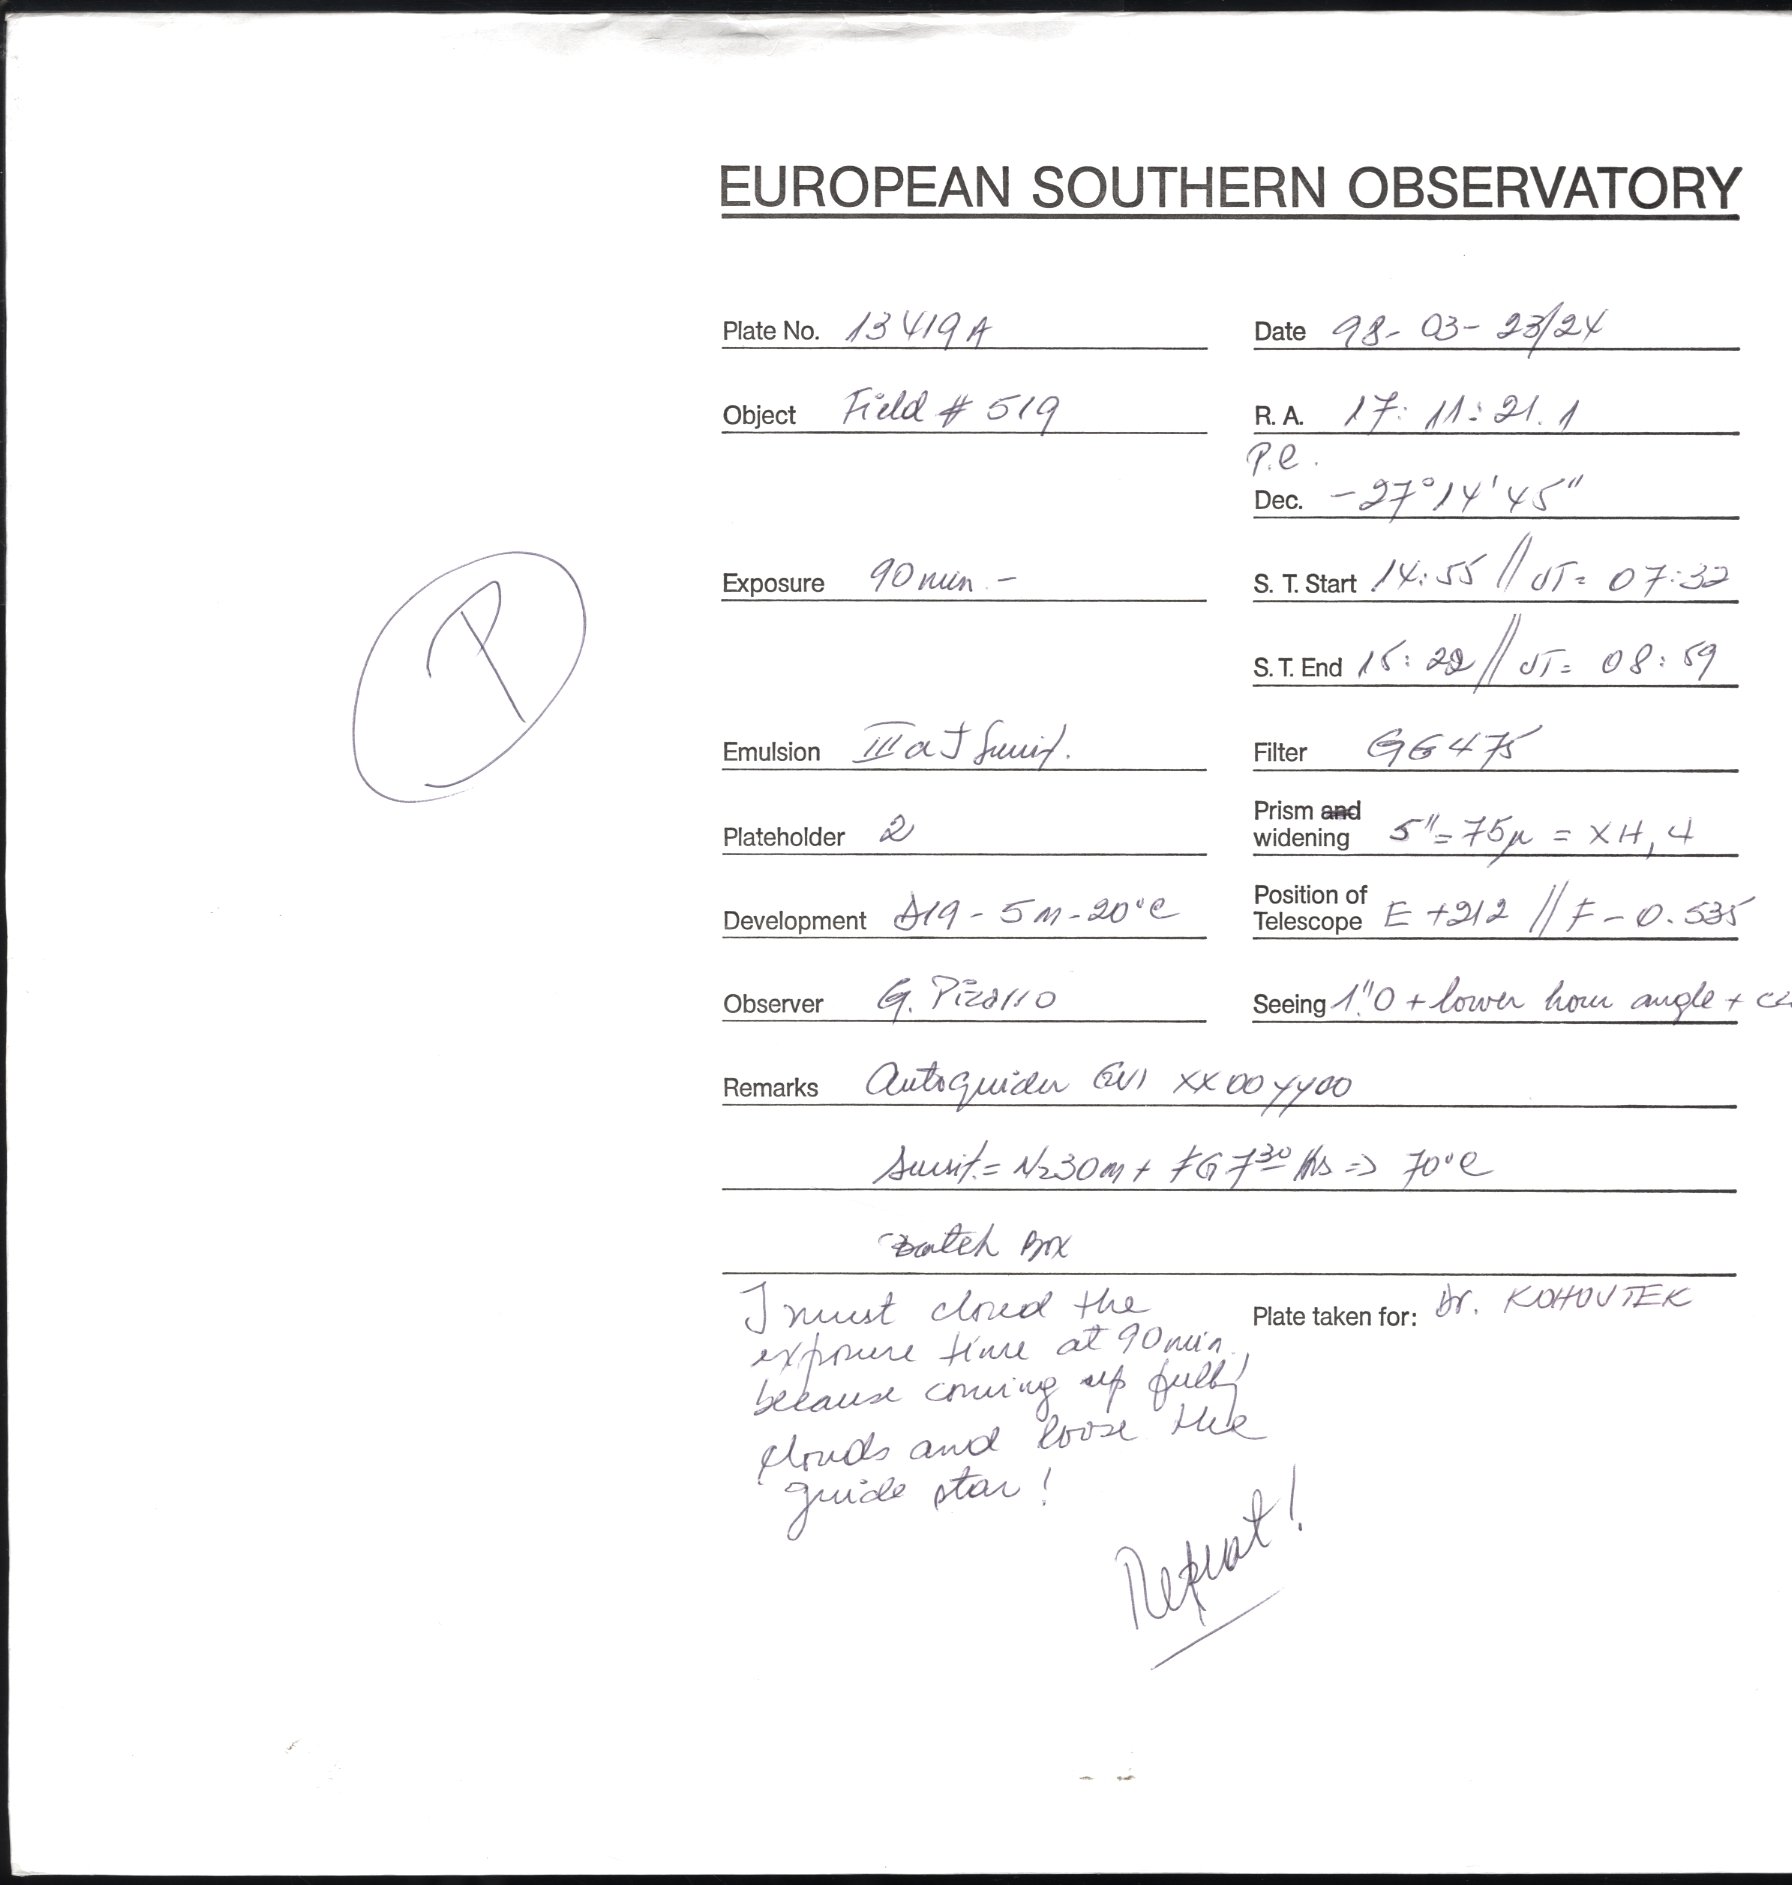 EUROPEAN SOUTHERN OBSERVATORY
Plate No. 13419A Date 98-03-23/24
Object Field # 519 R. A. 17: 11: 21. 1
P.C.
Dec. -27°14'45"
Exposure 90 min. - S. T. Start 14:55 // UT= 07:32
S. T. End 15: 22 // UT= 08:59
P
Emulsion III a J Filter GG475
Prism and
widening 5"=75µ = XH, 4
Plateholder 2
Position of
Telescope E +212 // F - 0.535
Development D19 - 5m - 20°C
Observer G. Pizarro Seeing 1".0 + lower hour angle +
Remarks Autoguider XX00YY00
Sensit.= N2 30m + FG 7 30 hrs => 70°C
Batch Box
I must closed the Plate taken for: Dr. KOHOUTEK
exposure time at 90 min.
because coming up fully
clouds and loose the
guide star!
Repeat!